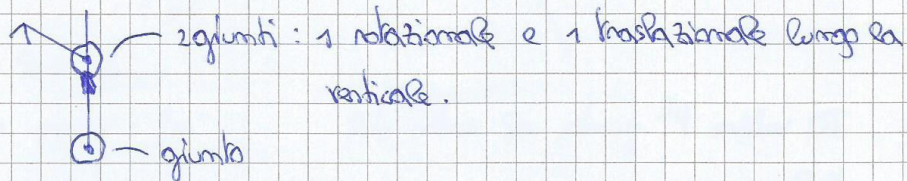 2 giunti : 1 rotazionale e 1 traslazionale lungo la
verticale.
giunto